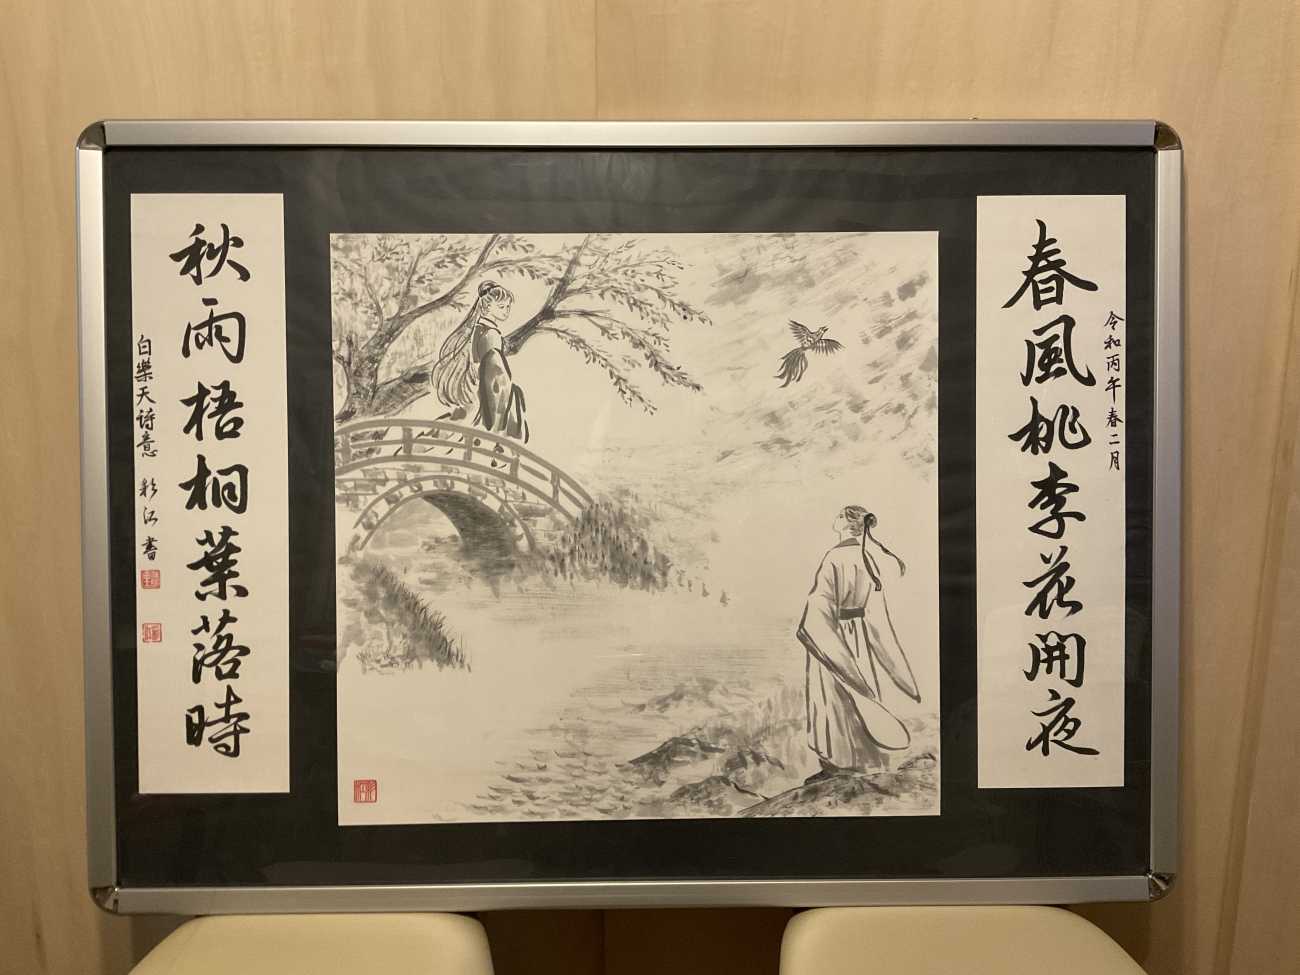 春風桃李花開夜
令和丙午春二月
秋雨梧桐葉落時
白樂天詩意 彩江書